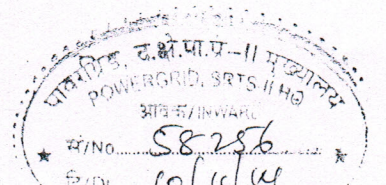 पावरग्रिड, द.क्षे.पा.प्र.-II मुख्यालय
POWERGRID, SRTS-II HQ
आवक/INWARD
सं/No. 58256